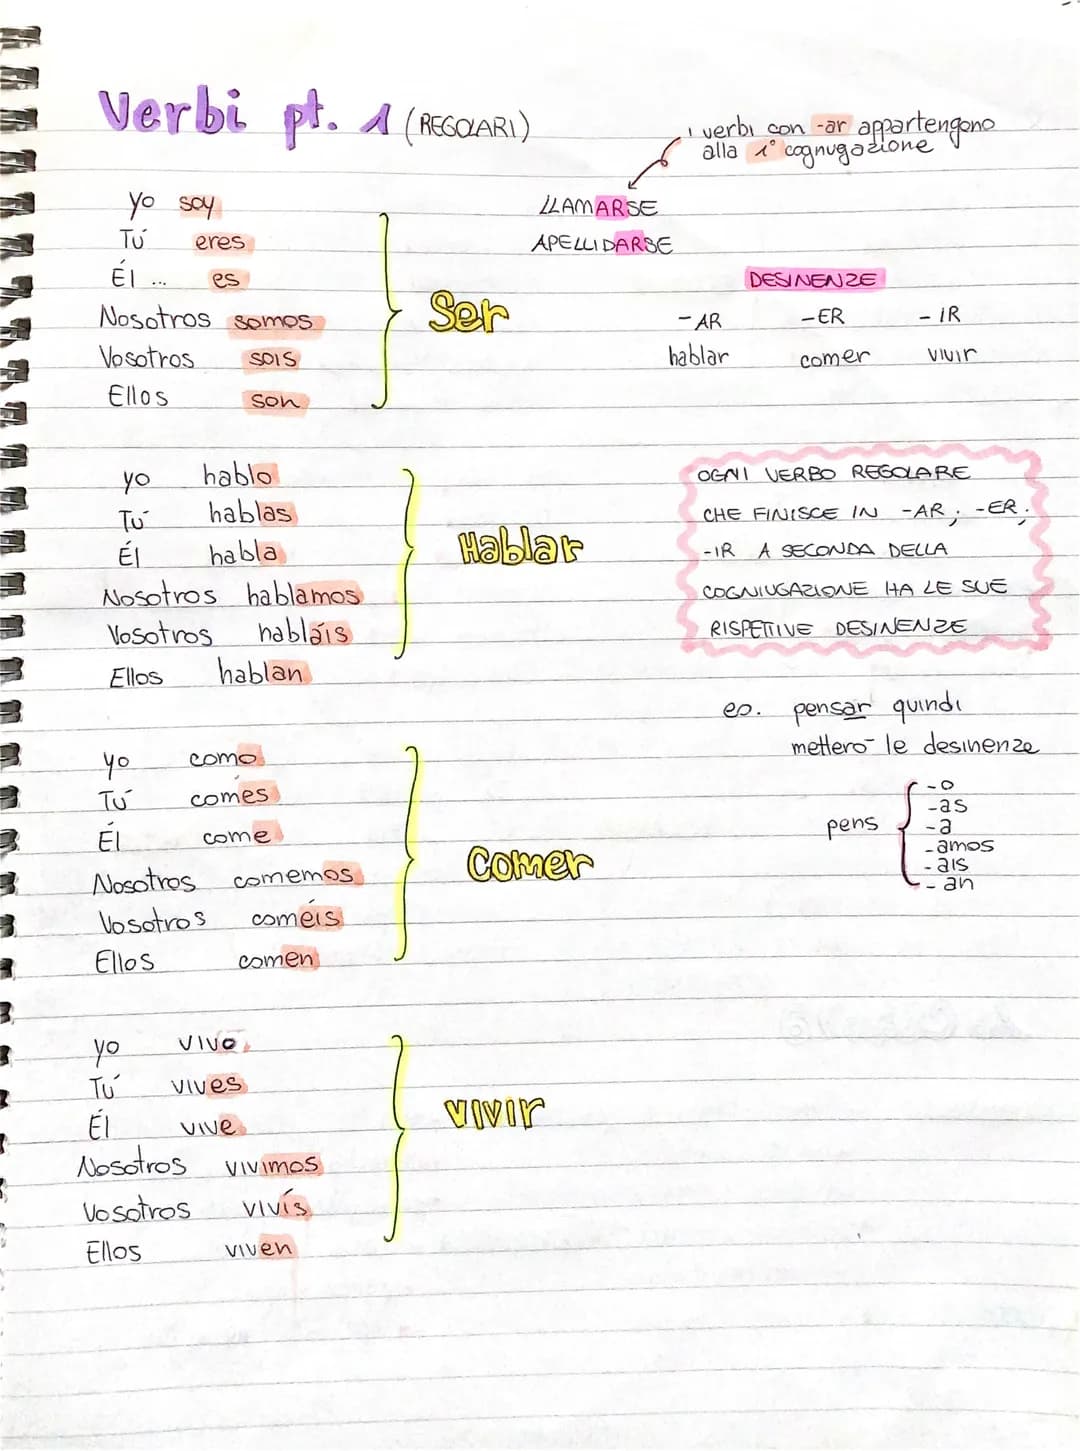 Verbi pt. 1 (REGOLARI)
i verbi con -ar appartengono
alla 1° cognugazione
LLAMARSE
APELLIDARSE
Yo soy
Tú eres
Él ... es
Nosotros somos
Vosotros sois
Ellos son
Ser
DESINENZE
-AR -ER -IR
hablar comer vivir
yo hablo
Tú hablas
Él habla
Nosotros hablamos
Vosotros habláis
Ellos hablan
Hablar
OGNI VERBO REGOLARE
CHE FINISCE IN -AR; -ER;
-IR A SECONDA DELLA
COGNIUGAZIONE HA LE SUE
RISPETTIVE DESINENZE
es. pensar quindi
metterò le desinenze
pens
-o
-as
-a
-amos
-ais
-an
yo como
Tú comes
Él come
Nosotros comemos
Vosotros coméis
Ellos comen
Comer
yo vivo
Tú vives
Él vive
Nosotros vivimos
Vosotros vivís
Ellos viven
vivir